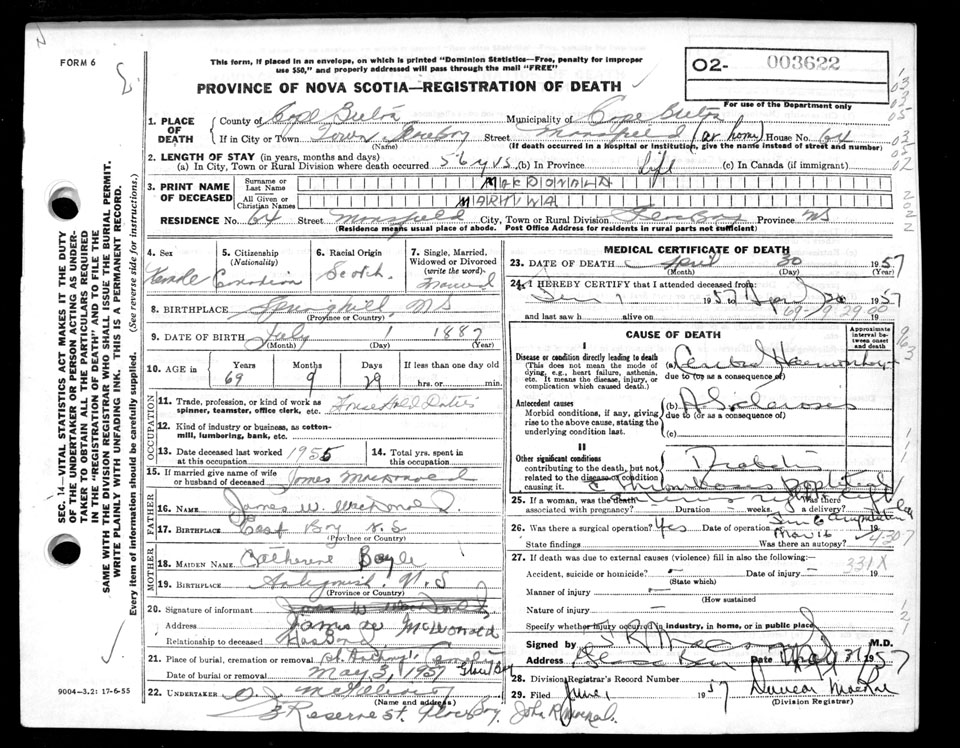 FORM 6
This form, if placed in an envelope, on which is printed "Dominion Statistics—Free, penalty for improper
use $50," and properly addressed will pass through the mail "FREE"
02- 003622
For use of the Department only
PROVINCE OF NOVA SCOTIA—REGISTRATION OF DEATH
1. PLACE OF DEATH
County of Cape Breton Municipality of Cape Breton
If in City or Town Town Glace Bay Street (at home) House No. 64
(Name) (If death occurred in a hospital or institution, give the name instead of street and number)
2. LENGTH OF STAY (in years, months and days)
(a) In City, Town or Rural Division where death occurred 56 yrs (b) In Province Life (c) In Canada (if immigrant)
3. PRINT NAME OF DECEASED
Surname or Last Name MACDONALD
All Given or Christian Names
RESIDENCE No. 64 Street City, Town or Rural Division Glace Bay Province NS
(Residence means usual place of abode. Post Office Address for residents in rural parts not sufficient)
4. Sex
Female
5. Citizenship
(Nationality)
Canadian
6. Racial Origin
Scotch
7. Single, Married, Widowed or Divorced
(write the word)
Married
8. BIRTHPLACE Springhill, NS
(Province or Country)
9. DATE OF BIRTH July 1 1887
(Month) (Day) (Year)
10. AGE in
Years Months Days If less than one day old
69 9 29 hrs. or min.
OCCUPATION
11. Trade, profession, or kind of work as
spinner, teamster, office clerk, etc. Household Duties
12. Kind of industry or business, as cotton-
mill, lumbering, bank, etc.
13. Date deceased last worked
at this occupation 1955
14. Total yrs. spent in
this occupation
15. If married give name of wife
or husband of deceased James MacDonald
FATHER
16. NAME James W. MacDonald
17. BIRTHPLACE East Bay N.S
(Province or Country)
MOTHER
18. MAIDEN NAME Catherine Boyle
19. BIRTHPLACE Antigonish N.S
(Province or Country)
20. Signature of informant
Address James W McDonald
Relationship to deceased Husband
21. Place of burial, cremation or removal St. Anthony's Glace Bay
May 3, 1957
22. UNDERTAKER
(Name and address)
Reserve St. Glace Bay
9004-3.2: 17-6-55
MEDICAL CERTIFICATE OF DEATH
23. DATE OF DEATH April 30 1957
(Month) (Day) (Year)
24. I HEREBY CERTIFY that I attended deceased from:
1957
and last saw h alive on 19
69-9-29 00
CAUSE OF DEATH
Approximate interval between onset and death
I
Disease or condition directly leading to death
(This does not mean the mode of
dying, e.g., heart failure, asthenia,
etc. It means the disease, injury, or
complication which caused death.)
(a) Cerebral Haemorrhage
due to (or as a consequence of)
Antecedent causes
Morbid conditions, if any, giving
rise to the above cause, stating the
underlying condition last.
(b) A. Sclerosis
due to (or as a consequence of)
(c)
II
Other significant conditions
contributing to the death, but not
related to the disease or condition
causing it.
Diabetes
25. If a woman, was the death
associated with pregnancy? Duration weeks. Was there a delivery?
26. Was there a surgical operation? Yes Date of operation
State findings Mar 16
Was there an autopsy?
4307
27. If death was due to external causes (violence) fill in also the following:—
331X
Accident, suicide or homicide? Date of injury 19
(State which)
Manner of injury
(How sustained
Nature of injury
Specify whether injury occurred in industry, in home, or in public place
Signed by M.D.
Address Glace Bay Date May 31 1957
28. Division Registrar's Record Number
29. Filed June 1 1957 Duncan MacRae
(Division Registrar)
SEC. 14—VITAL STATISTICS ACT MAKES IT THE DUTY
OF THE UNDERTAKER OR PERSON ACTING AS UNDER-
TAKER TO OBTAIN ALL THE PARTICULARS REQUIRED
IN THE "REGISTRATION OF DEATH" AND TO FILE THE
SAME WITH THE DIVISION REGISTRAR WHO SHALL ISSUE THE BURIAL PERMIT.
WRITE PLAINLY WITH UNFADING INK. THIS IS A PERMANENT RECORD.
Every item of information should be carefully supplied. (See reverse side for instructions.)